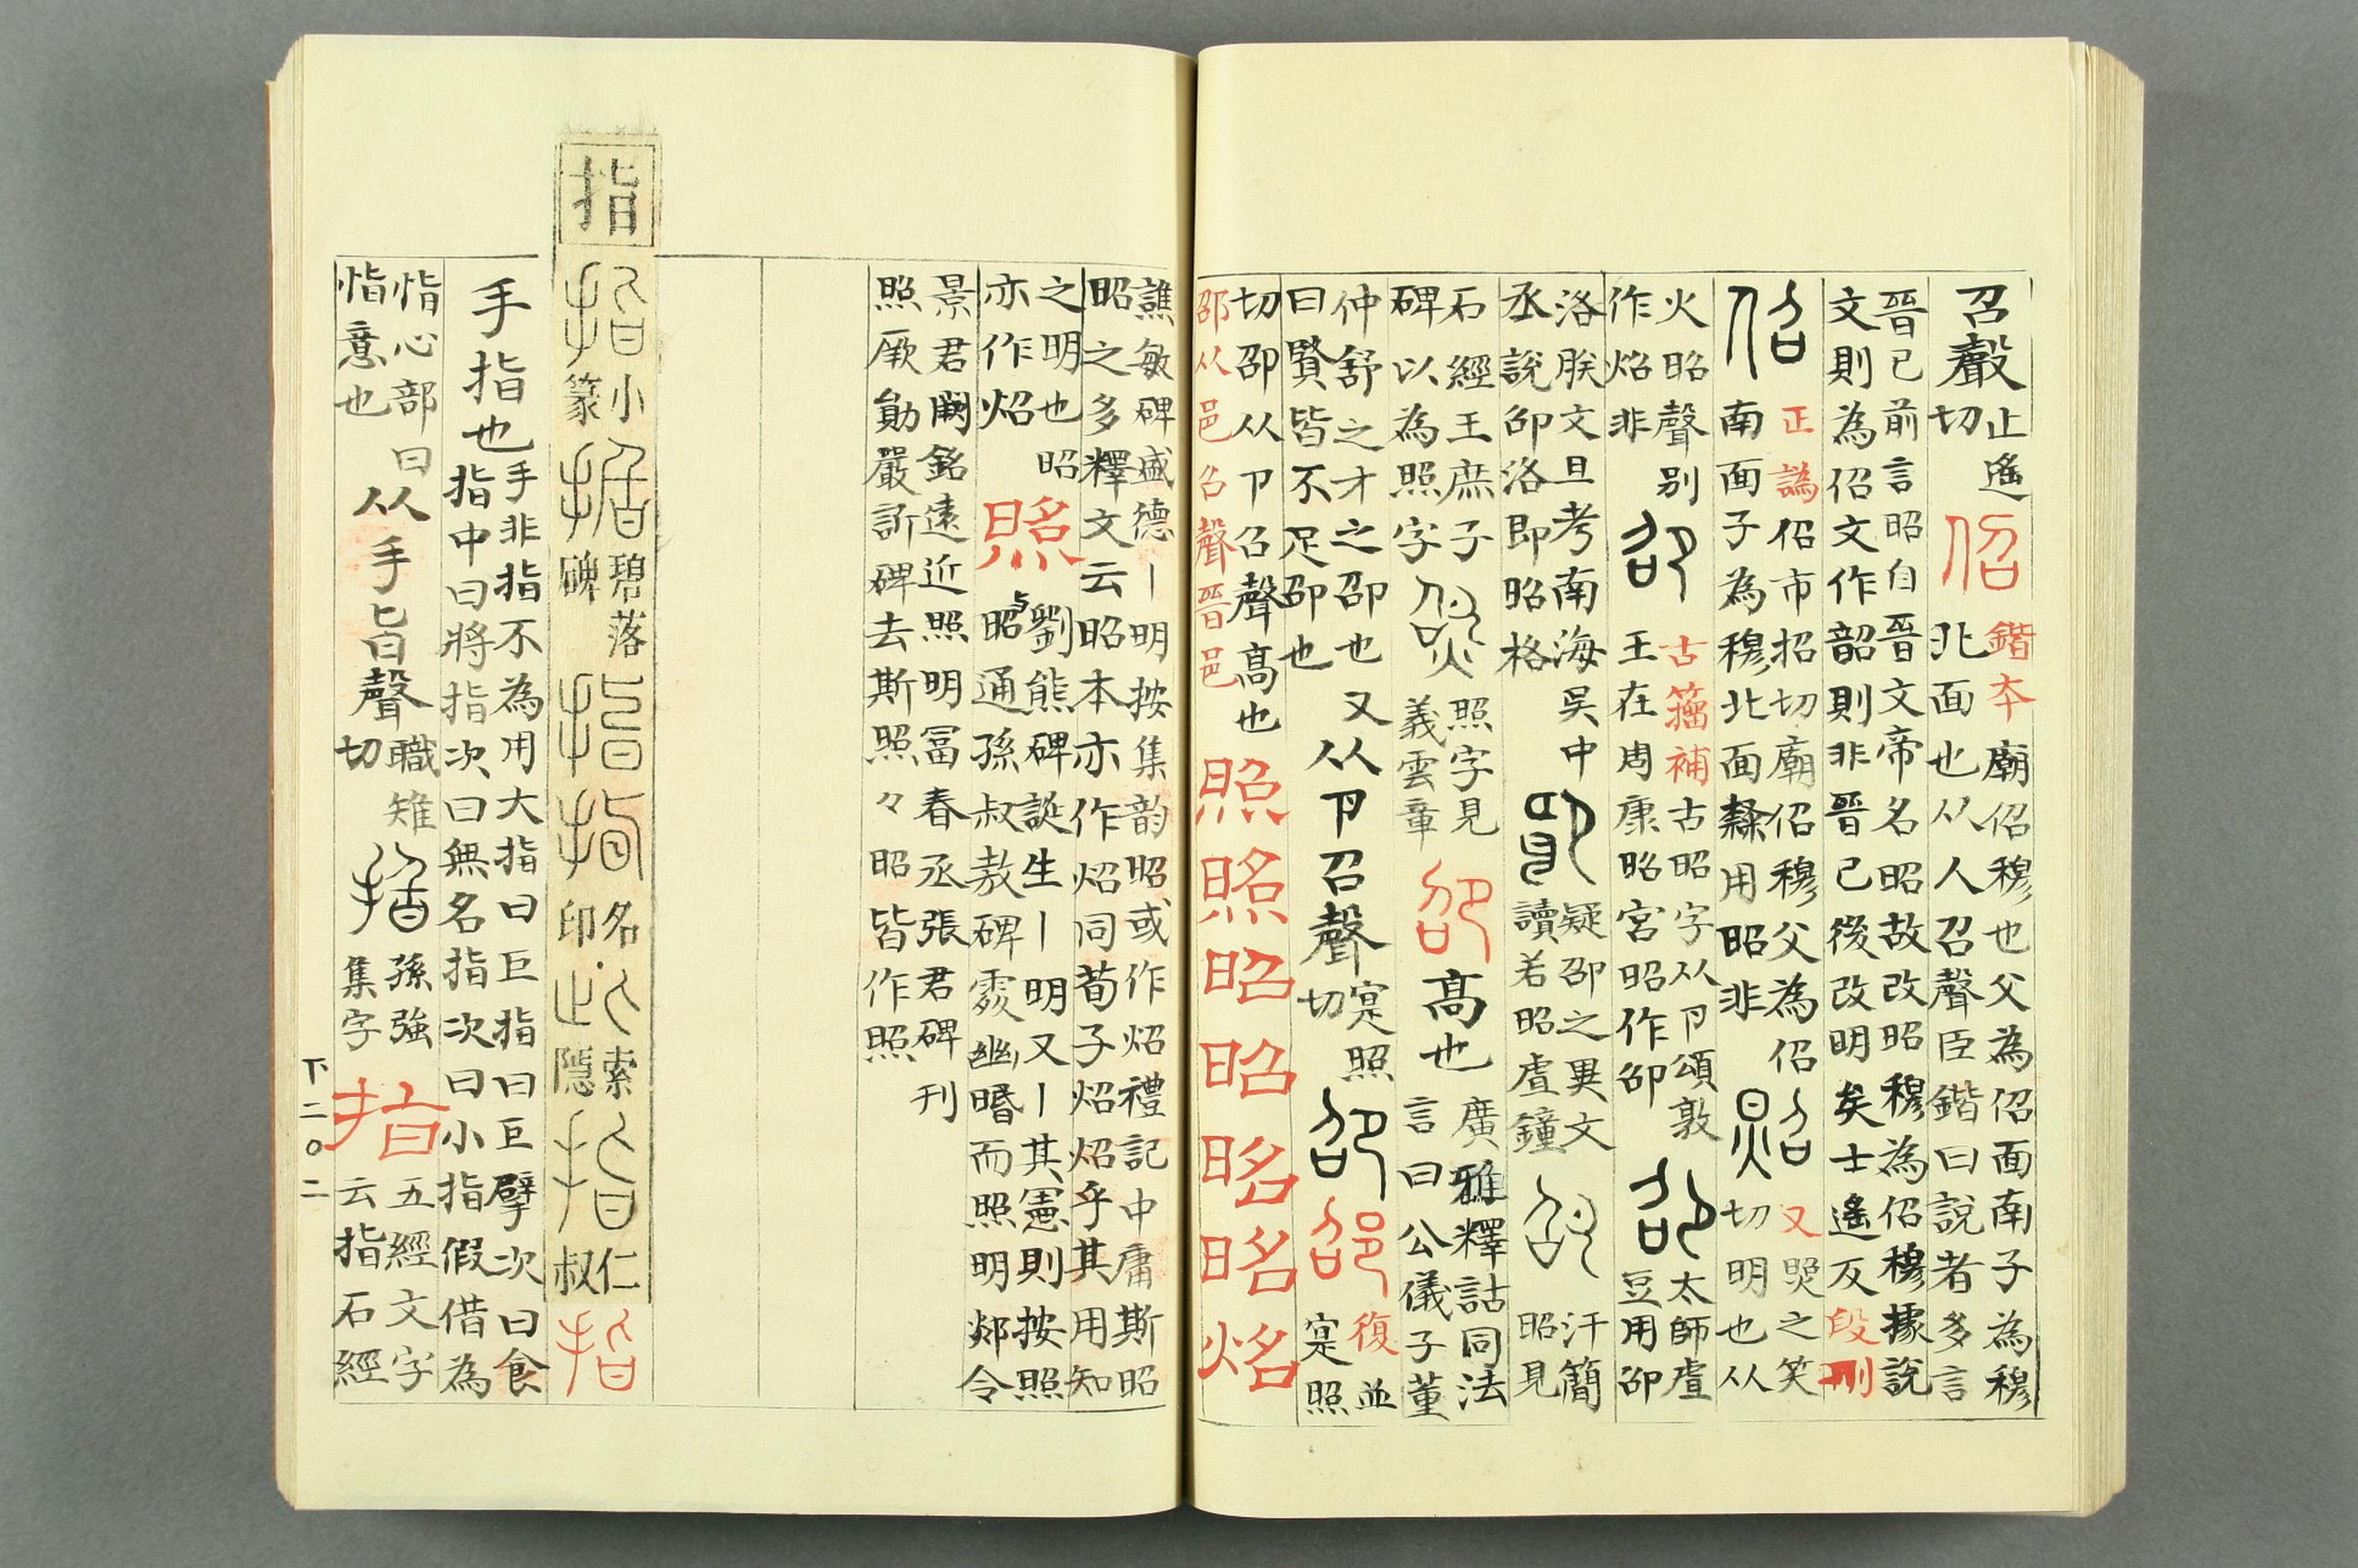 召聲
止遙
切
佋
鍇本
廟佋穆也父為佋面南子為穆
北面也从人召聲臣鍇曰說者多言
晉已前言昭自晉文帝名昭故改昭穆為佋穆據說
文則為佋文作韶則非晉已後改明矣士遙反段刪
佋
正譌
佋市招切廟佋穆父為佋
南面子為穆北面隸用昭非
照
又
照之笑
切明也从
火昭聲別
作炤非
卲
古籀補
古昭字从卪頌敦
王在周康昭宮昭作卲
卲
太師虘
豆用卲
洛朕文旦考南海吳中
丞說卲洛即昭格
疑卲之異文
讀若昭虘鐘
汗簡
昭見
石經王庶子
碑以為照字
照字見
義雲章
卲
高也
廣雅釋詁同法
言曰公儀子董
仲舒之才之卲也
曰賢皆不足卲也
又从卪召聲
寔照
切
卲
邵
復並
寔照
切卲从卪召聲高也
邵从邑召聲晉邑
照
照
昭
昭
昭
昭
炤
譙敏碑盛德丨明按集韵昭或作炤禮記中庸斯昭
昭之多釋文云昭本亦作炤同荀子炤炤乎其用知
之明也昭
亦作炤
照
劉熊碑誕生丨明又丨其憲則按照
與昭通孫叔敖碑霧幽暋而照明郯令
景君闕銘遠近照明冨春丞張君碑刊
照厥勛嚴訢碑去斯照々昭皆作照
指
指
小
篆
指
碧落
碑
指
指
名
印
指
索
隱
指
仁
叔
指
手指也
手非指不為用大指曰巨指曰巨擘次曰食
指中曰將指次曰無名指次曰小指假借為
恉心部曰
恉意也
从手旨聲
職雉
切
指
孫強
集字
指
五經文字
云指石經
下二〇二